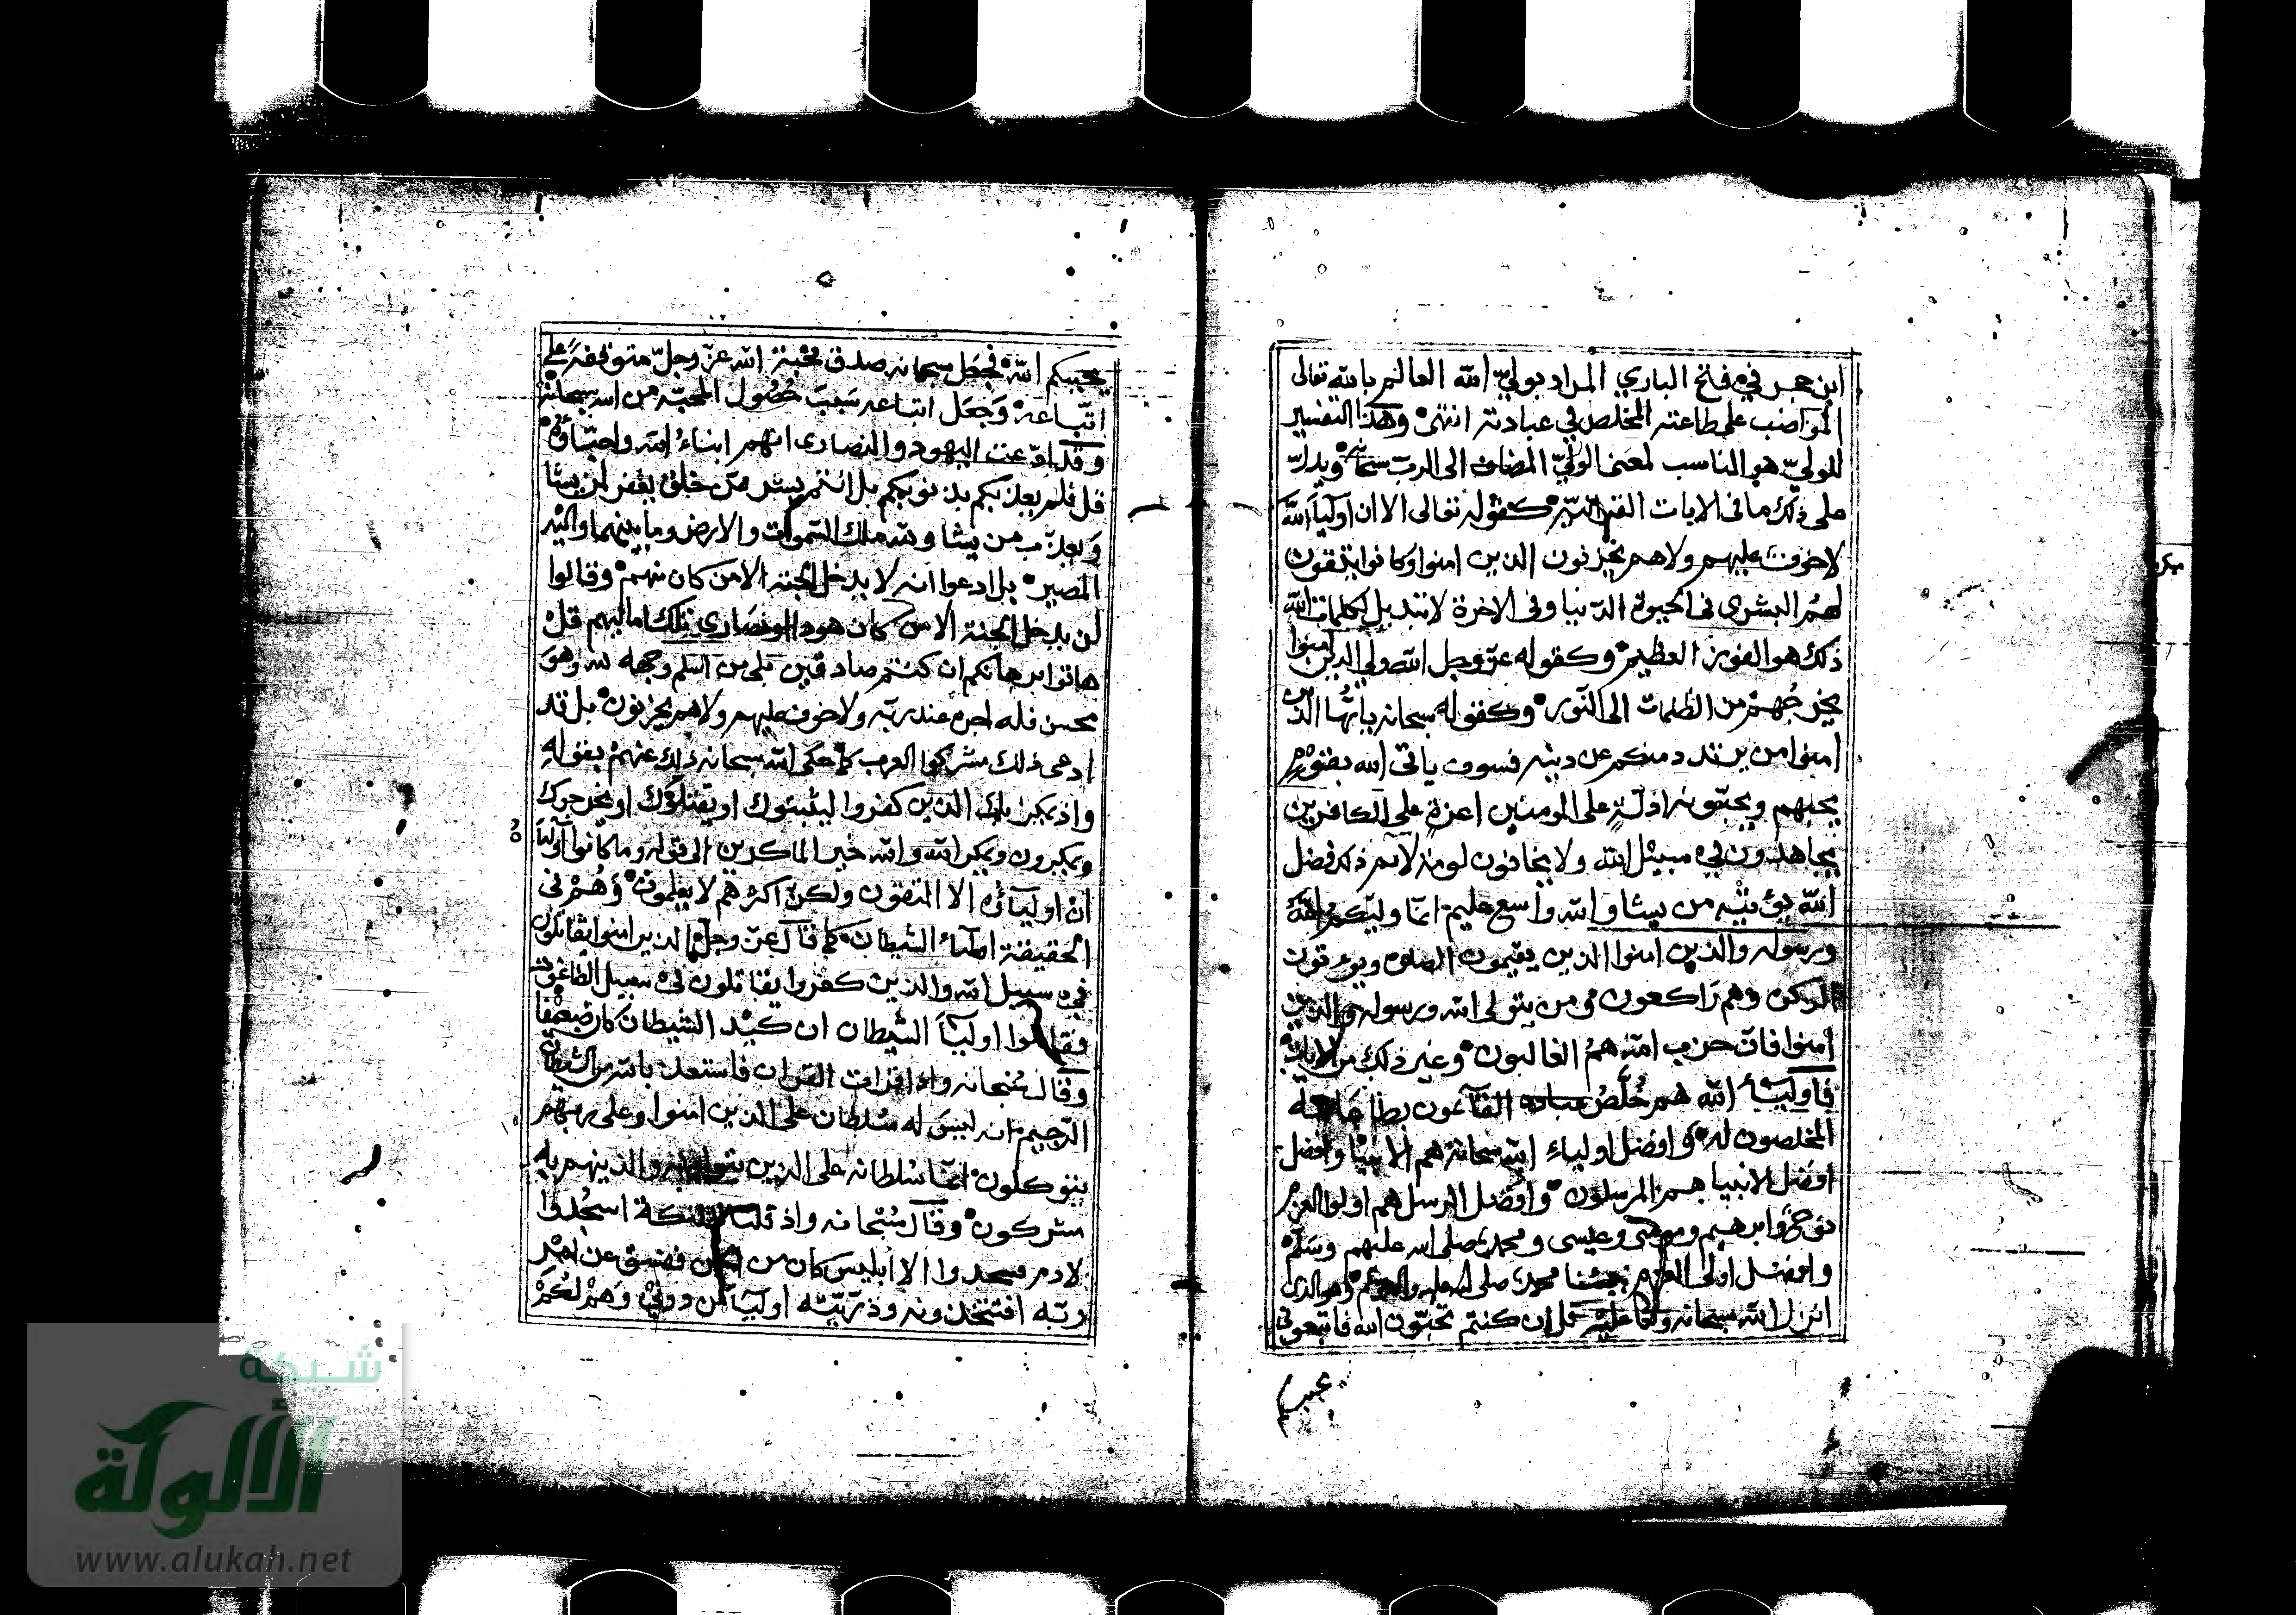 ابن حجر في فتح الباري المراد بولي الله العالم بالله تعالى
المواضب على طاعته المخلص في عبادته انتهى وهذا التفسير
للولي هو المناسب لمعنى الولي المضاف الى الرب سبحانه ويدل
على ذلك ما في الايات القرآنية كقوله تعالى الا ان اولياء الله
لا خوف عليهم ولا هم يحزنون الذين امنوا وكانوا يتقون
لهم البشرى في الحيوة الدنيا وفي الاخرة لا تبديل لكلمات الله
ذلك هو الفوز العظيم وكقوله عز وجل الله ولي الذين امنوا
يخرجهم من الظلمات الى النور وكقوله سبحانه يا ايها الذين
امنوا من يرتدد منكم عن دينه فسوف ياتي الله بقوم
يحبهم ويحبونه اذلة على المومنين اعزة على الكافرين
يجاهدون في سبيل الله ولا يخافون لومة لائم ذلك فضل
الله يؤتيه من يشا والله واسع عليم انما وليكم الله
ورسوله والذين امنوا الذين يقيمون الصلوة ويوتون
الزكوة وهم راكعون ومن يتولى الله ورسوله والذين
امنوا فان حزب الله هم الغالبون وغير ذلك من الايات
فاولياء الله هم خلص عباده القائمون بطاعاته
المخلصون له وافضل اولياء الله سبحانه هم الانبيا وافضل
افضل الانبيا هم المرسلون وافضل الرسل هم اولوا العزم
نوح وابرهيم وموسى وعيسى ومحمد صلى الله عليهم وسلم
وافضل اولى العزم نبينا محمد صلى الله عليه وسلم وهو الذي
انزل الله سبحانه وتعالى عليه قل ان كنتم تحبون الله فاتبعوني
يحببكم
يحببكم الله فجعل سبحانه صدق محبة الله عز وجل متوقفة على
اتباعه وجعل اتباعه سبب حصول المحبة من الله سبحانه
وقد ادعت اليهود والنصارى انهم ابناء الله واحباؤه
قل فلم يعذبكم بذنوبكم بل انتم بشر ممن خلق يغفر لمن يشا
ويعذب من يشا ولله ملك السموات والارض وما بينهما واليه
المصير بل ادعوا انه لا يدخل الجنة الا من كان منهم وقالوا
لن يدخل الجنة الا من كان هودا او نصارى تلك امانيهم قل
هاتوا برهانكم ان كنتم صادقين بلى من اسلم وجهه لله وهو
محسن فله اجره عند ربه ولا خوف عليهم ولا هم يحزنون بل قد
ادعى ذلك مشركوا العرب كما حكى الله سبحانه ذلك عنهم بقوله
واذ يمكر بك الذين كفروا ليثبتوك او يقتلوك او يخرجوك
ويمكرون ويمكر الله والله خير الماكرين الى قوله وما كانوا اولياءه
ان اولياؤه الا المتقون ولكن اكثرهم لا يعلمون وهم في
الحقيقة اولياء الشيطان كما قال عز وجل الذين امنوا يقاتلون
في سبيل الله والذين كفروا يقاتلون في سبيل الطاغوت
فقاتلوا اولياء الشيطان ان كيد الشيطان كان ضعيفا
وقال سبحانه واذا قرات القران فاستعذ بالله من الشيطان
الرجيم انه ليس له سلطان على الذين امنوا وعلى ربهم
يتوكلون انما سلطانه على الذين يتولونه والذين هم به
مشركون وقال سبحانه واذ قلنا للملئكة اسجدوا
لادم فسجدوا الا ابليس كان من الجن ففسق عن امر
ربه افتتخذونه وذريته اولياء من دوني وهم لكم
شبكة
الألوكة
www.alukah.net